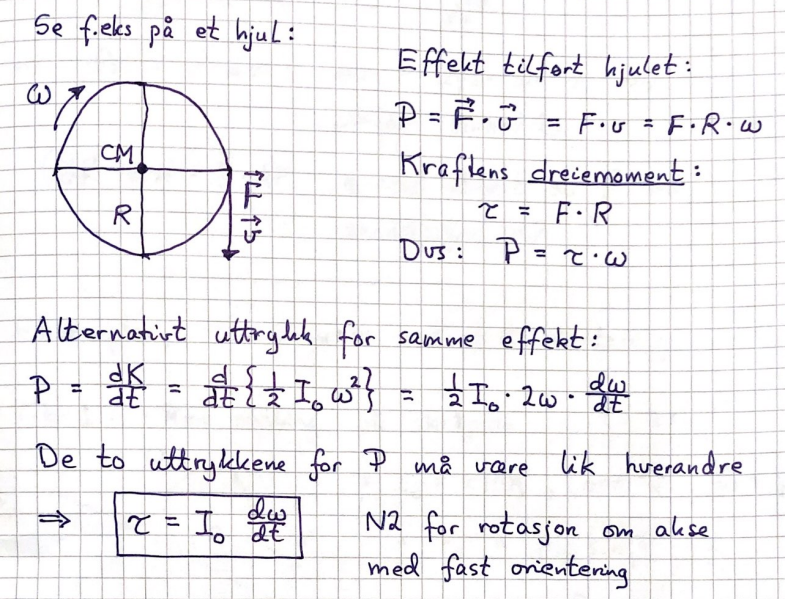 Se f.eks på et hjul:
ω
CM
R
F⃗
v⃗
Effekt tilført hjulet:
P = F⃗ · v⃗ = F·v = F·R·ω
Kraftens dreiemoment:
τ = F·R
Dvs: P = τ·ω
Alternativt uttrykk for samme effekt:
P = dK/dt = d/dt {1/2 I₀ ω²} = 1/2 I₀ · 2ω · dω/dt
De to uttrykkene for P må være lik hverandre
⇒ τ = I₀ dω/dt
N2 for rotasjon om akse
med fast orientering